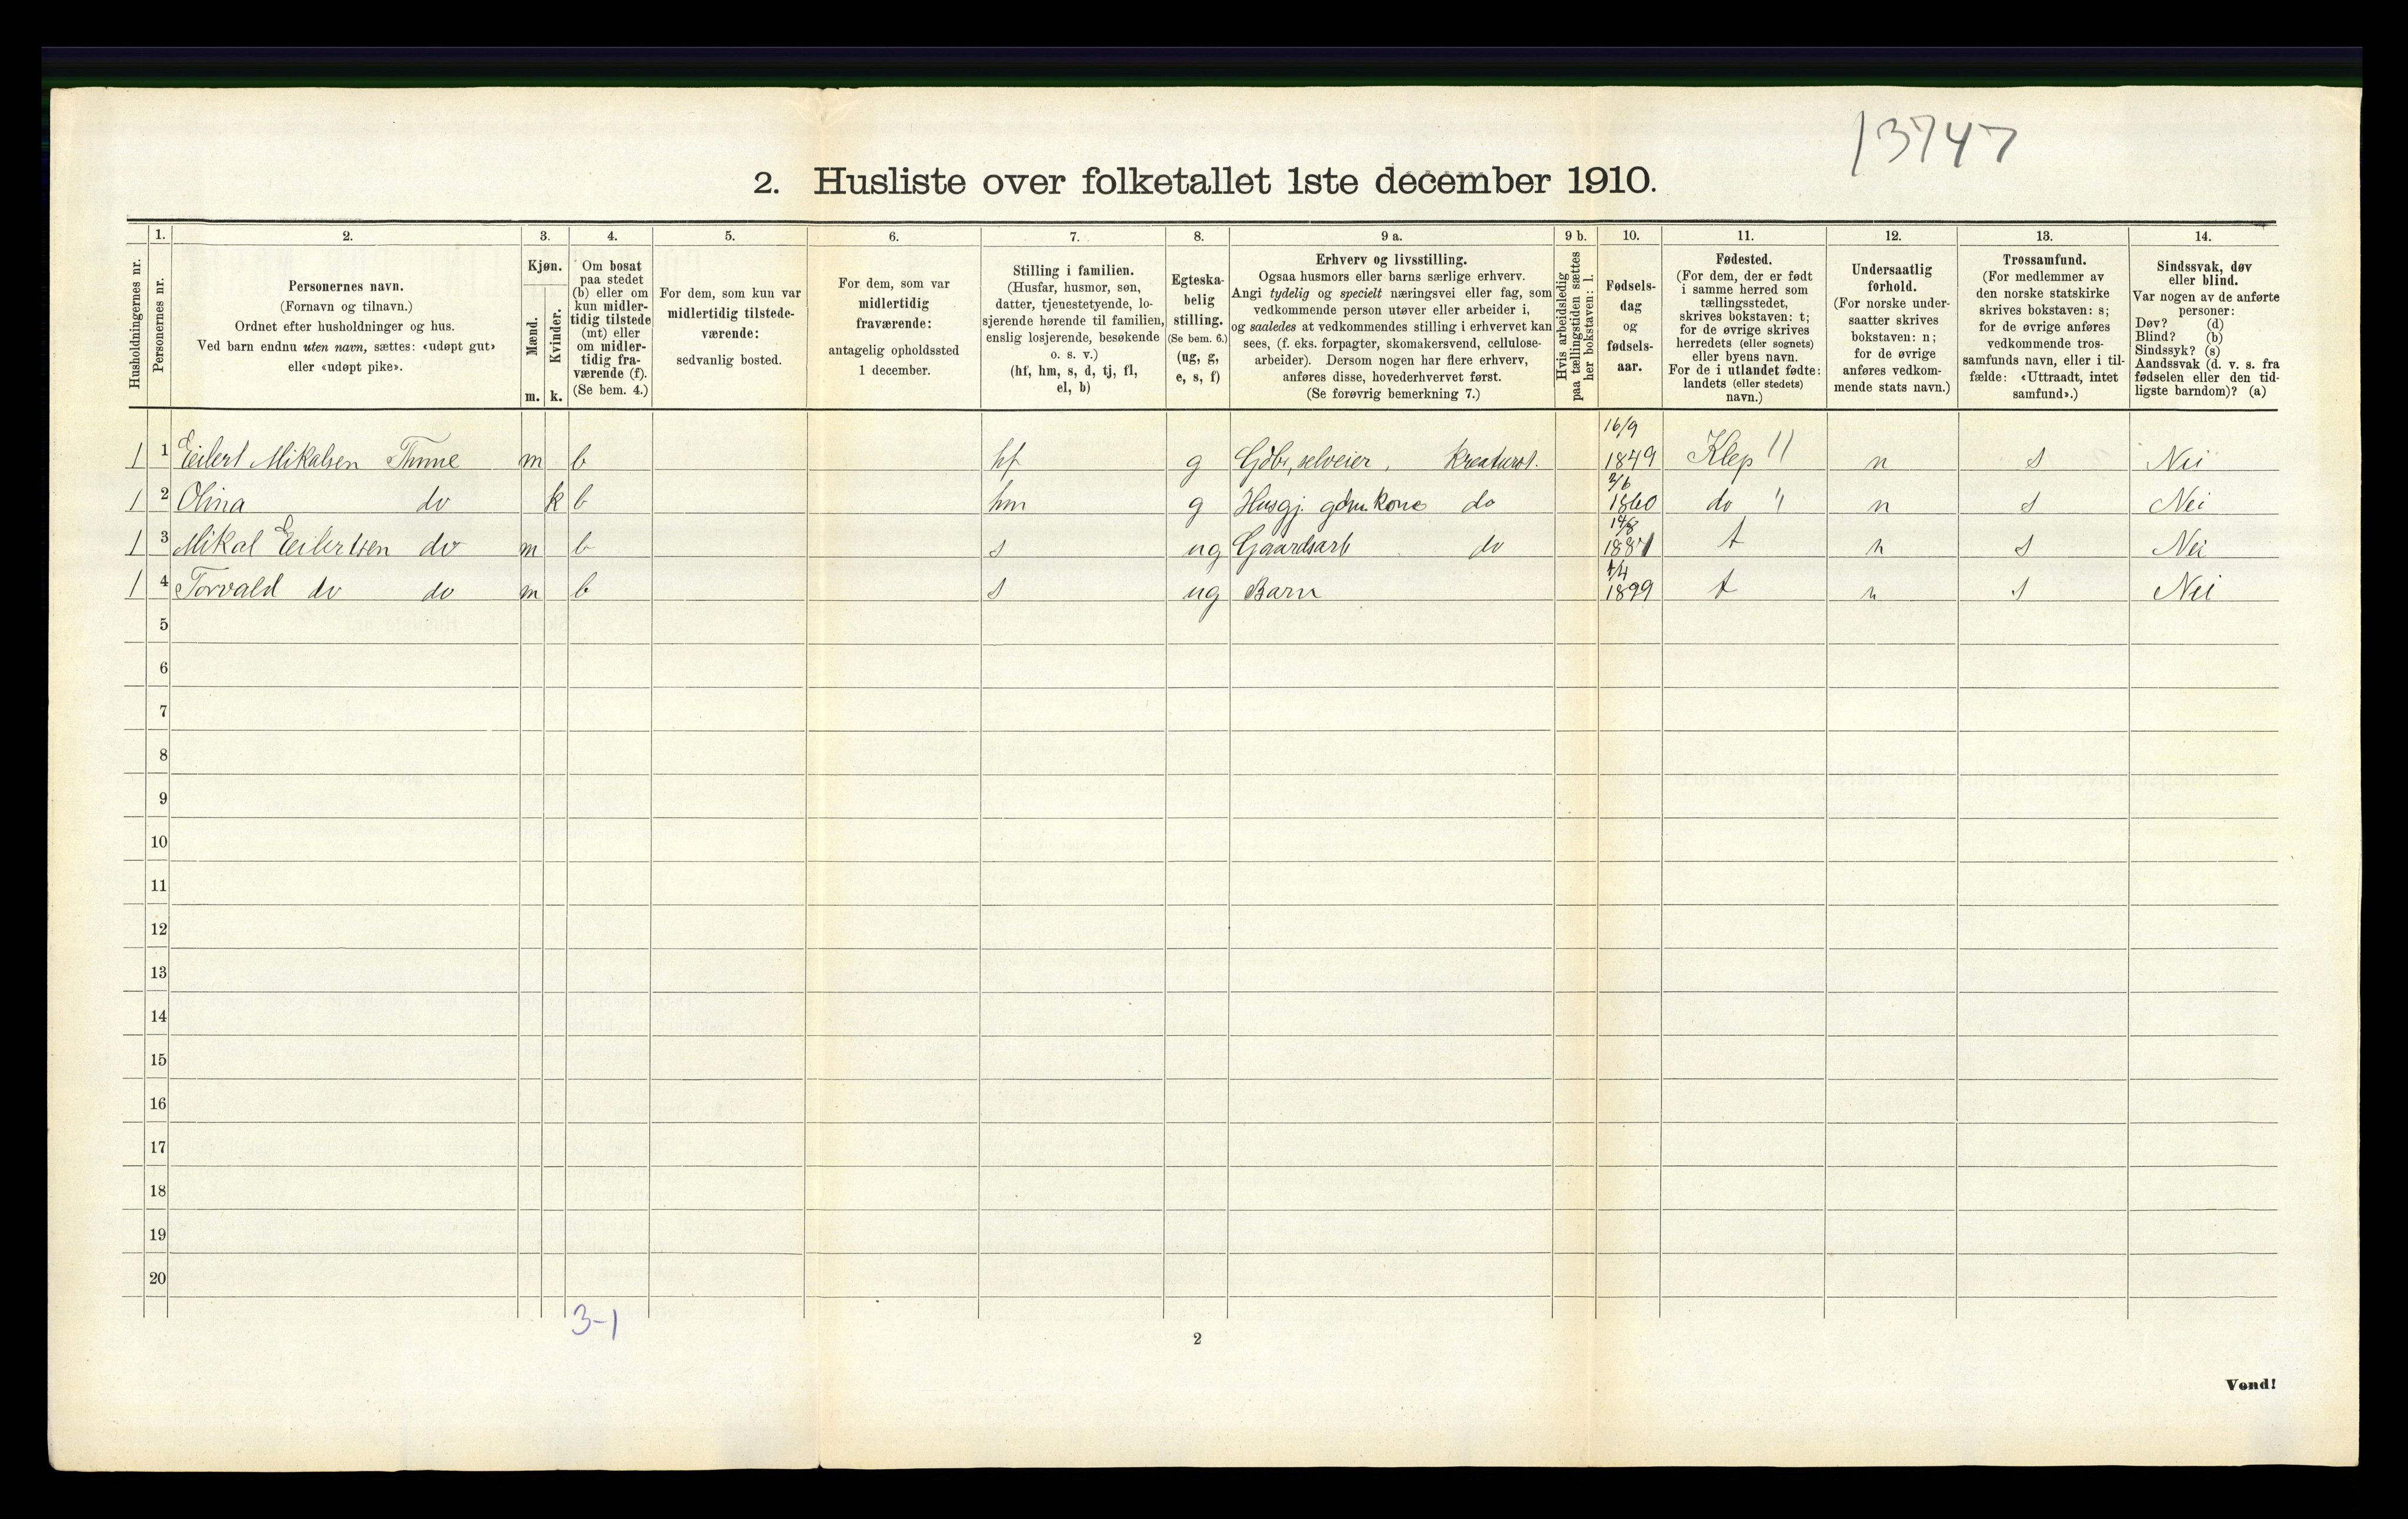 13747
2. Husliste over folketallet 1ste december 1910.
Husholdningernes nr.
1.
Personernes nr.
2.
Personernes navn.
(Fornavn og tilnavn.)
Ordnet efter husholdninger og hus.
Ved barn endnu uten navn, sættes: «udøpt gut»
eller «udøpt pike».
3.
Kjøn.
Mænd.
Kvinder.
m. k.
4.
Om bosat
paa stedet
(b) eller om
kun midler-
tidig tilstede
(mt) eller
om midler-
tidig fra-
værende (f).
(Se bem. 4.)
5.
For dem, som kun var
midlertidig tilstede-
værende:
sedvanlig bosted.
6.
For dem, som var
midlertidig
fraværende:
antagelig opholdssted
1 december.
7.
Stilling i familien.
(Husfar, husmor, søn,
datter, tjenestetyende, lo-
sjerende hørende til familien,
enslig losjerende, besøkende
o. s. v.)
(hf, hm, s, d, tj, fl,
el, b)
8.
Egteska-
belig
stilling.
(Se bem. 6.)
(ug, g,
e, s, f)
9 a.
Erhverv og livsstilling.
Ogsaa husmors eller barns særlige erhverv.
Angi tydelig og specielt næringsvei eller fag, som
vedkommende person utøver eller arbeider i,
og saaledes at vedkommendes stilling i erhvervet kan
sees, (f. eks. forpagter, skomakersvend, cellulose-
arbeider). Dersom nogen har flere erhverv,
anføres disse, hovederhvervet først.
(Se forøvrig bemerkning 7.)
9 b.
Hvis arbeidsledig
paa tællingstiden sættes
her bokstaven: l.
10.
Fødsels-
dag
og
fødsels-
aar.
11.
Fødested.
(For dem, der er født
i samme herred som
tællingsstedet,
skrives bokstaven: t;
for de øvrige skrives
herredets (eller sognets)
eller byens navn.
For de i utlandet fødte:
landets (eller stedets)
navn.)
12.
Undersaatlig
forhold.
(For norske under-
saatter skrives
bokstaven: n;
for de øvrige
anføres vedkom-
mende stats navn.)
13.
Trossamfund.
(For medlemmer av
den norske statskirke
skrives bokstaven: s;
for de øvrige anføres
vedkommende tros-
samfunds navn, eller i til-
fælde: «Uttraadt, intet
samfund».)
14.
Sindssvak, døv
eller blind.
Var nogen av de anførte
personer:
Døv? (d)
Blind? (b)
Sindssyk? (s)
Aandssvak (d. v. s. fra
fødselen eller den tid-
ligste barndom)? (a)
1 1 Eilert Mikalsen m b hf g Gdbr, selveier, Kreaturst. 16/9 1849 Klep 11 n s Nei
1 2 Olina do k b hm g Husgj. gdm. kone do 1860 do " n s Nei
1 3 Mikal Eilertsen do m b s ug Gaardsarb do 1881 t n s Nei
1 4 Torvald do do m b s ug Barn 1899 t n s Nei
5
6
7
8
9
10
11
12
13
14
15
16
17
18
19
20
3-1
2
Vend!